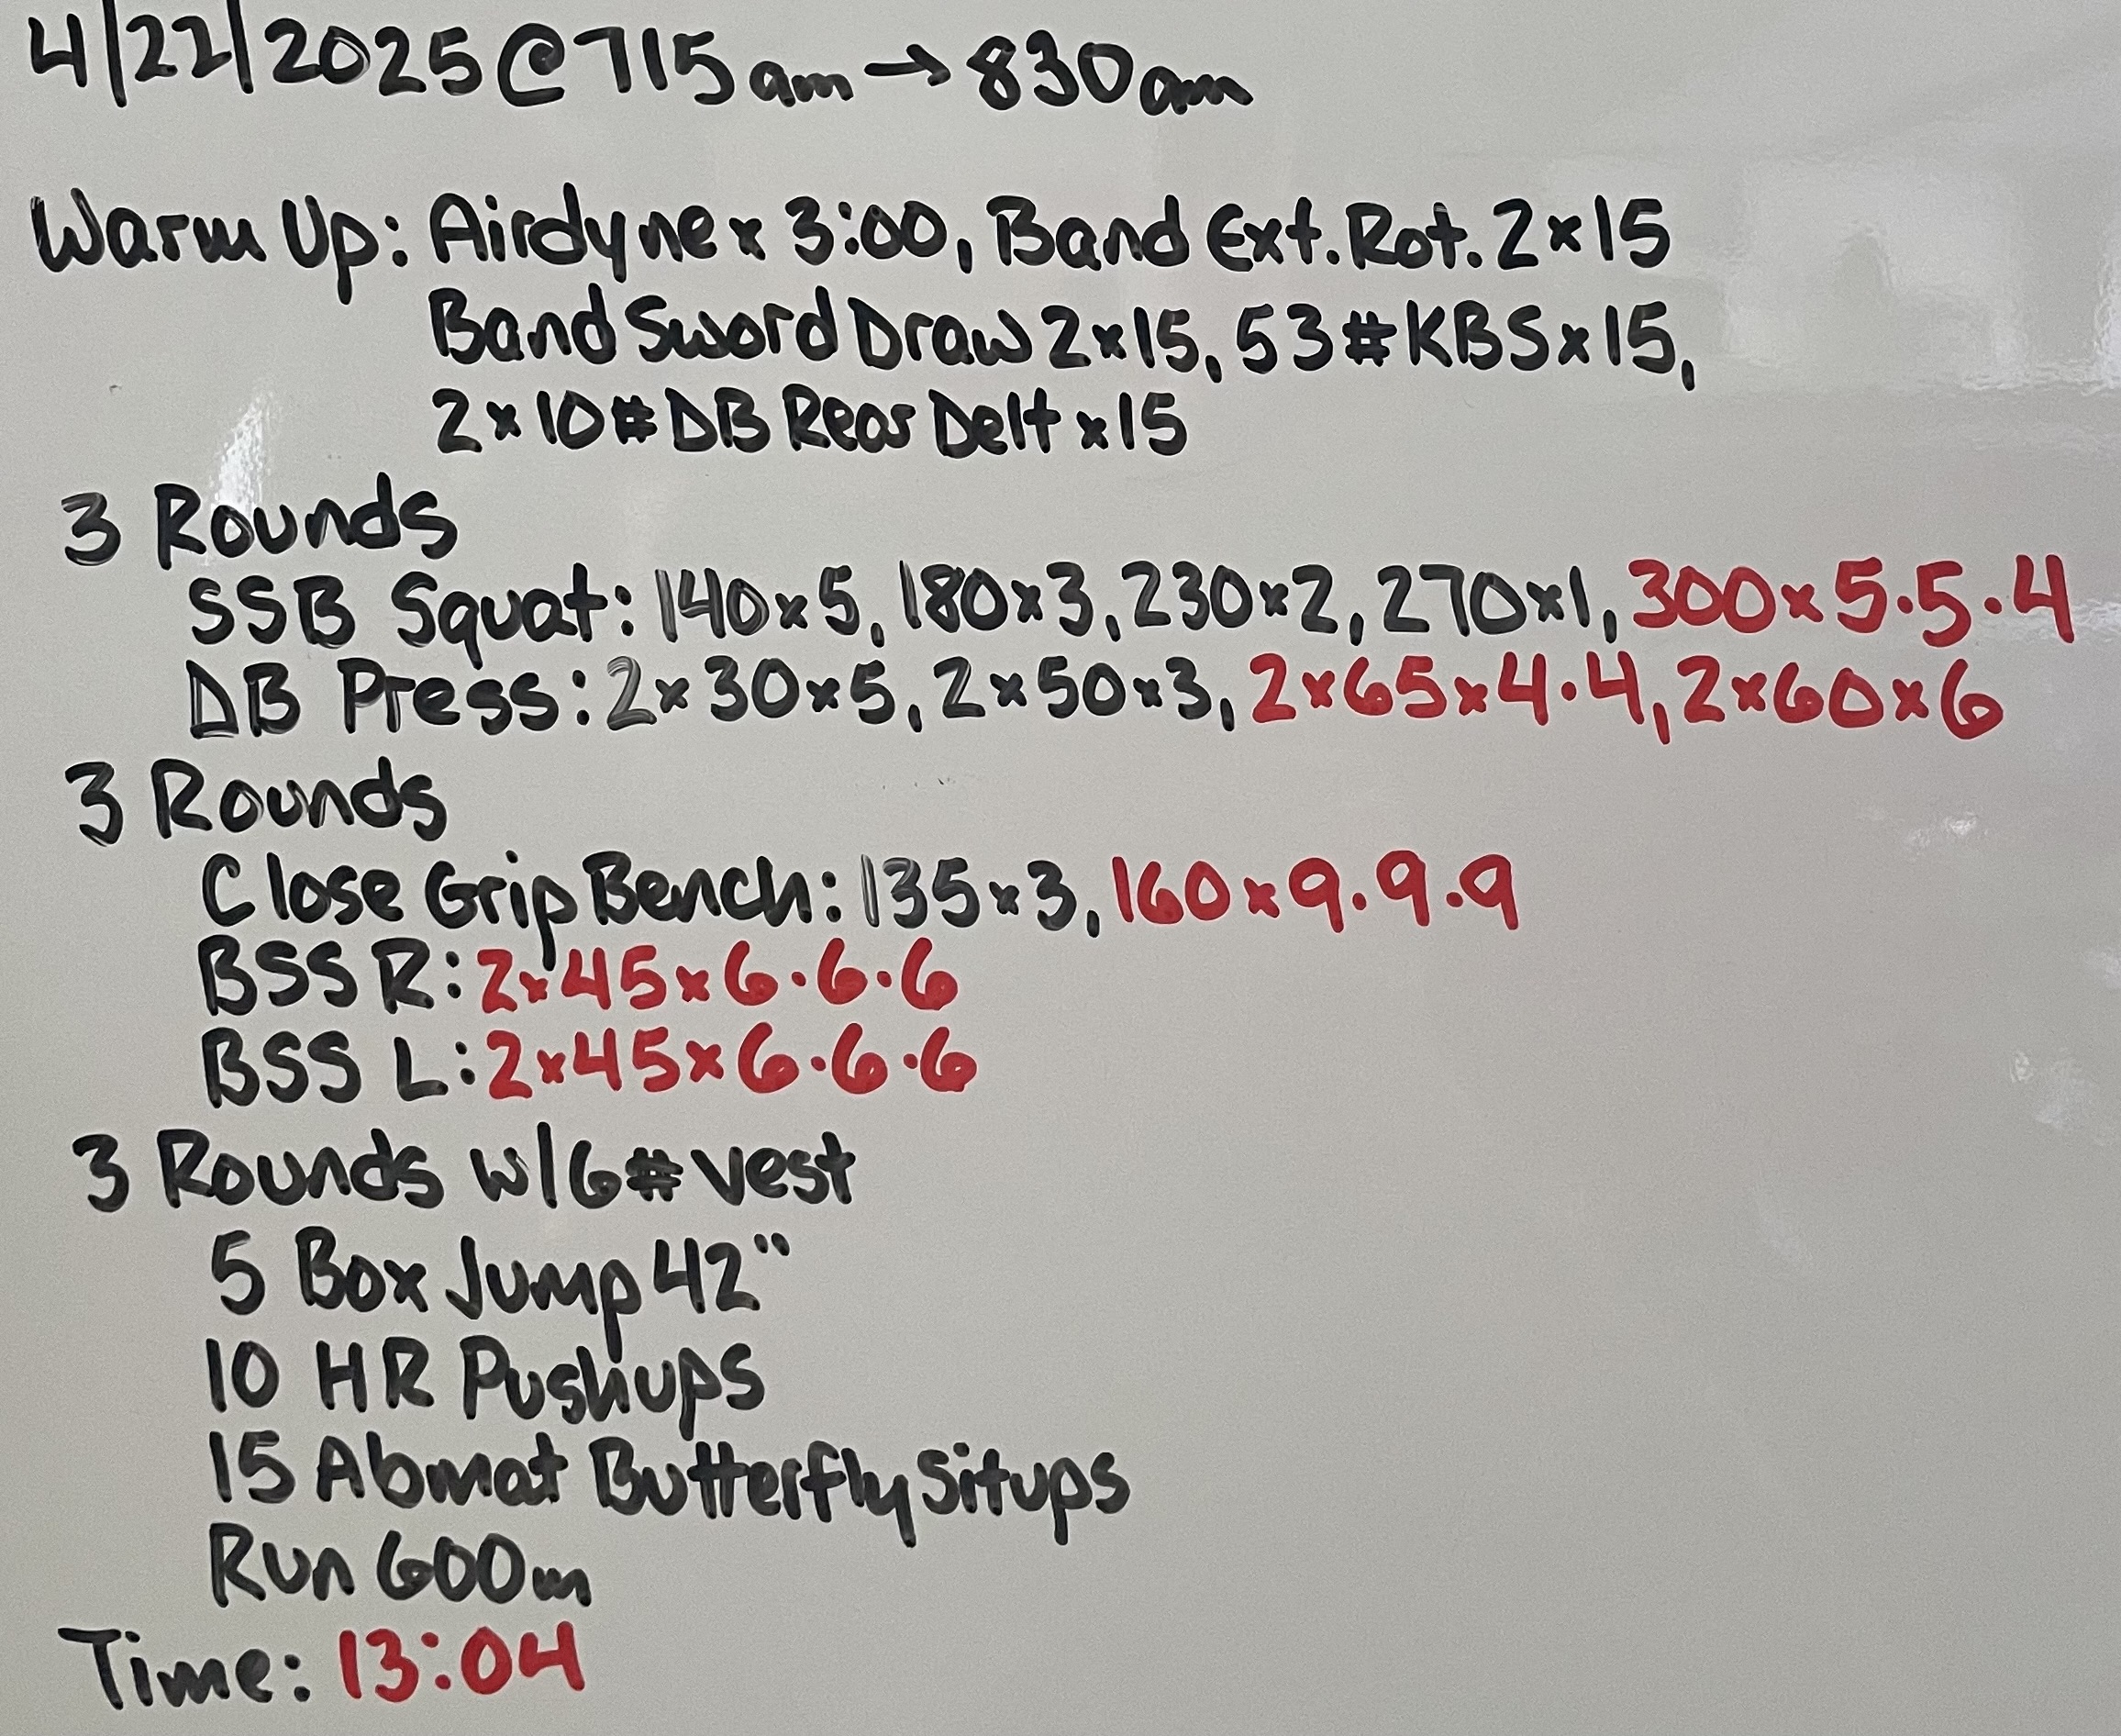 4/22/2025 @ 715am → 830am
Warm Up: Airdyne x 3:00, Band Ext. Rot. 2x15
Band Sword Draw 2x15, 53# KBS x 15,
2x10# DB Rear Delt x15
3 Rounds
SSB Squat: 140x5, 180x3, 230x2, 270x1, 300x5·5·4
DB Press: 2x30x5, 2x50x3, 2x65x4·4, 2x60x6
3 Rounds
Close Grip Bench: 135x3, 160x9·9·9
BSS R: 2x45x6·6·6
BSS L: 2x45x6·6·6
3 Rounds w/6# vest
5 Box Jump 42"
10 HR Pushups
15 Abmat Butterfly Situps
Run 600m
Time: 13:04